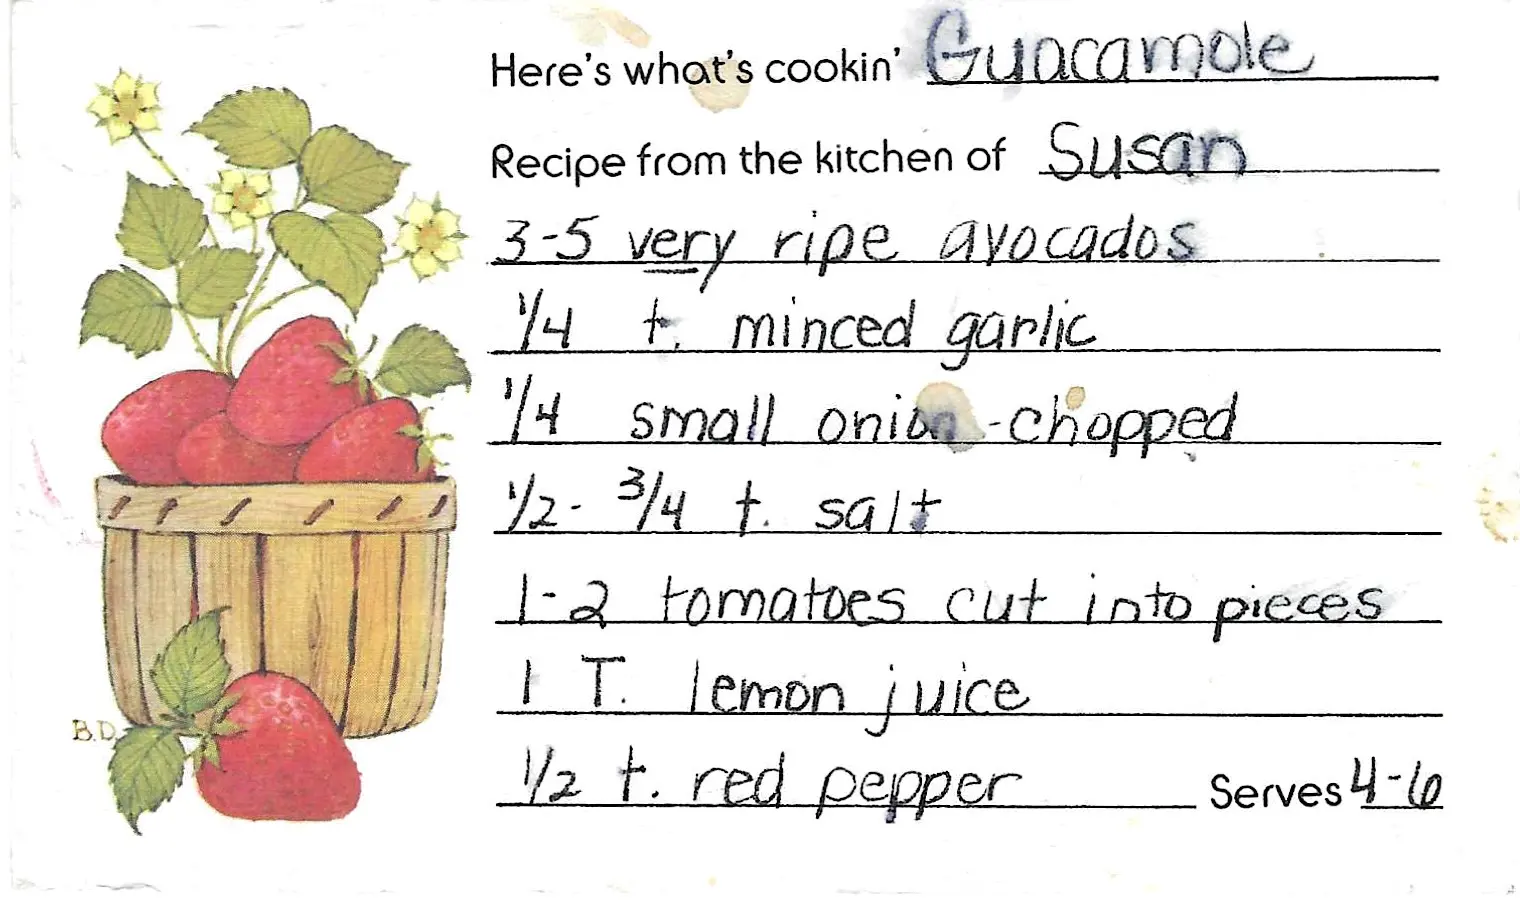 Here's what's cookin' Guacamole
Recipe from the kitchen of Susan
3-5 very ripe avocados
1/4 t. minced garlic
1/4 small onion - chopped
1/2 - 3/4 t. salt
1-2 tomatoes cut into pieces
1 T. lemon juice
1/2 t. red pepper Serves 4-6
B.D.